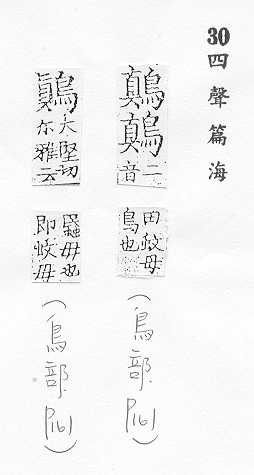 30四聲篇海
鷏鷆二音田蚊母鳥也(鳥部P161)
鷏大堅切尔雅云蟁母也即蚊母(鳥部P161)